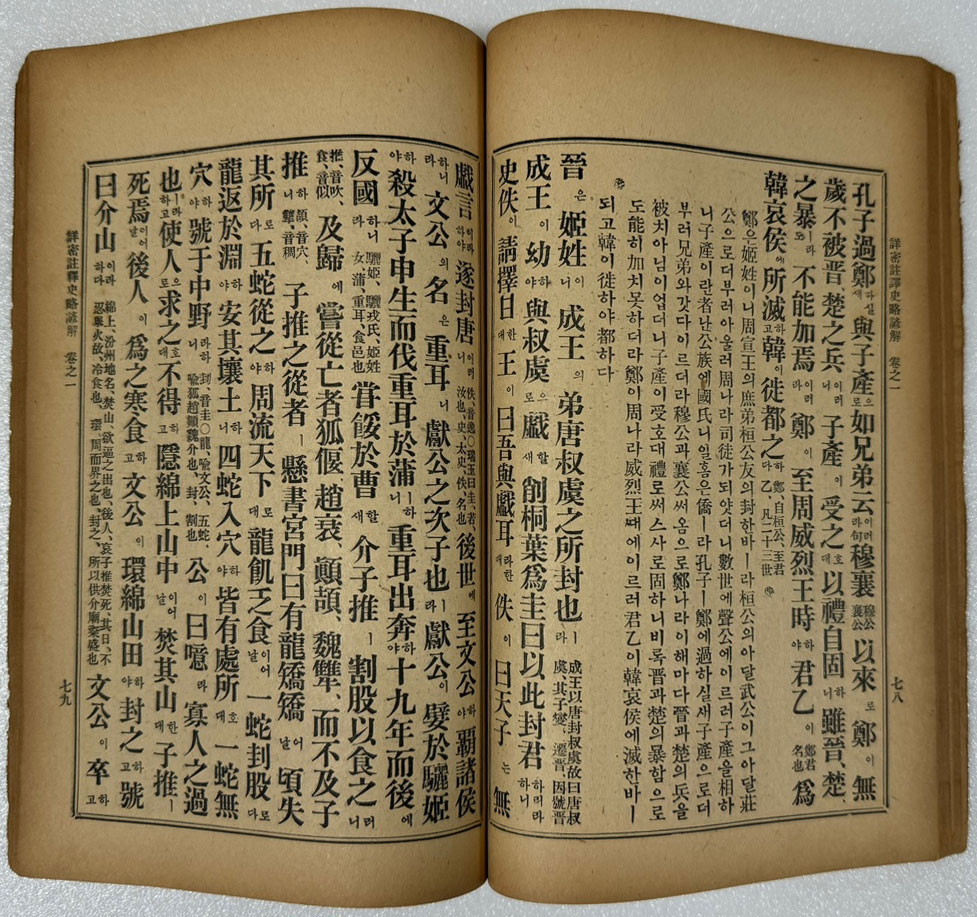 詳密註釋史略諺解 卷之一
孔子過鄭하실새 與子產으로 如兄弟云이러라 穆襄穆公襄公以來 鄭이 無
歲不被晋、楚之兵이러니 子產이 受之호대 以禮自固하니 雖晉、楚、
之暴ㅣ라도 不能加焉이러라 鄭이 至周威烈王時하야 君乙이 鄭君名也 爲
韓哀侯에 所滅하고 韓이 徙都之하다 鄭、自桓公、至君乙、凡二十三世
鄭은姬姓이니周宣王의庶弟桓公友의封한바ㅣ라桓公의아달武公이그아달莊
公으로더부러아울러周나라司徒가되얏더니數世에聲公에이르러子產을相하
니子產이란者난公族에國氏니일홈은僑ㅣ라孔子ㅣ鄭에過하실새子產으로더
부러兄弟와갓다이르더라穆公과襄公써옴으로鄭나라이해마다晉과楚의兵을
被치아님이업더니子產이受호대禮로써스사로固하니비록晋과楚의暴함으로
도能히加치못하더라鄭이周나라威烈王때에이르러君乙이韓哀侯에滅한바ㅣ
되고韓이徙하야都하다
晉은 姬姓이니 成王의 弟唐叔虞之所封也ㅣ라 成王以唐封叔虞故曰唐叔虞、其子燮、遷晋、因號晋
成王이 幼하야 與叔虞로 戱할새 削桐葉爲圭曰以此封君하리라하니
史佚이 請擇日한대 王이 曰吾與戱耳라한대 佚이 曰天子는 無
七八
戱言이라하야 遂封唐이러니 佚、音逸○瑞玉曰圭、君者、汝也、史、太史、佚、名也 後世에 至文公하야 覇諸侯
하니라 文公의 名은 重耳니 獻公之次子也ㅣ라 獻公이 嬖於驪姬
하야 殺太子申生而伐重耳於蒲하니 重耳出奔하야 十九年而後에
反國하니라 驪姬、驪戎氏、姬姓女、蒲、重耳、食邑也 甞餒於曹할새 介子推ㅣ 割股以食之러니
推、音吹、食、音似 及歸에 嘗從亡者狐偃、趙衰、顚頡、魏犨、而不及子
推하니 頡、音穴、犨、音稠 子推之從者ㅣ 懸書宮門曰有龍矯矯 頃失
其所로다 五蛇從之하야 周流天下로다 龍飢乏食이어늘 一蛇刲股로다
龍返於淵하야 安其壤土하니 四蛇入穴하야 皆有處所호대 一蛇無
穴하야 號于中野라하니 刲、音圭○龍、喩文公、五蛇、喩狐趙顚魏介也、刲、割也 公이 曰噫라 寡人之過
也ㅣ라하고 使人으로 求之호대 不得하고 隱綿上山中이어날 焚其山한대 子推ㅣ
死焉이어날 後人이 爲之寒食하고 文公이 環綿山田하야 封之하고 號
曰介山이라하다 綿上、汾州地名、焚山、欲逼之出也、後人、哀子推焚死、其日、不忍擧火故、冷食也、環、周而界之也、封之、所以供介廟粢盛也、 文公이 卒하고
詳密註釋史略諺解 卷之一
七九